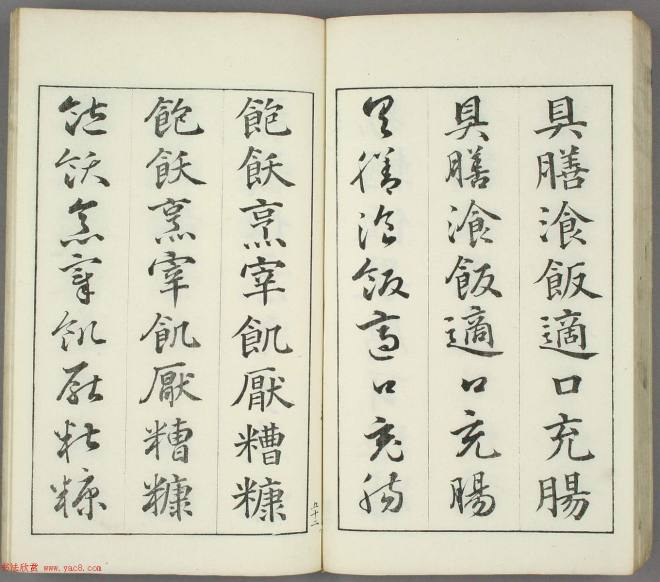 具膳湌飯適口充腸
具膳湌飯適口充腸
具膳湌飯適口充腸
飽飫烹宰飢厭糟糠
飽飫烹宰飢厭糟糠
飽飫烹宰飢厭糟糠
书法欣赏 www.yac8.com